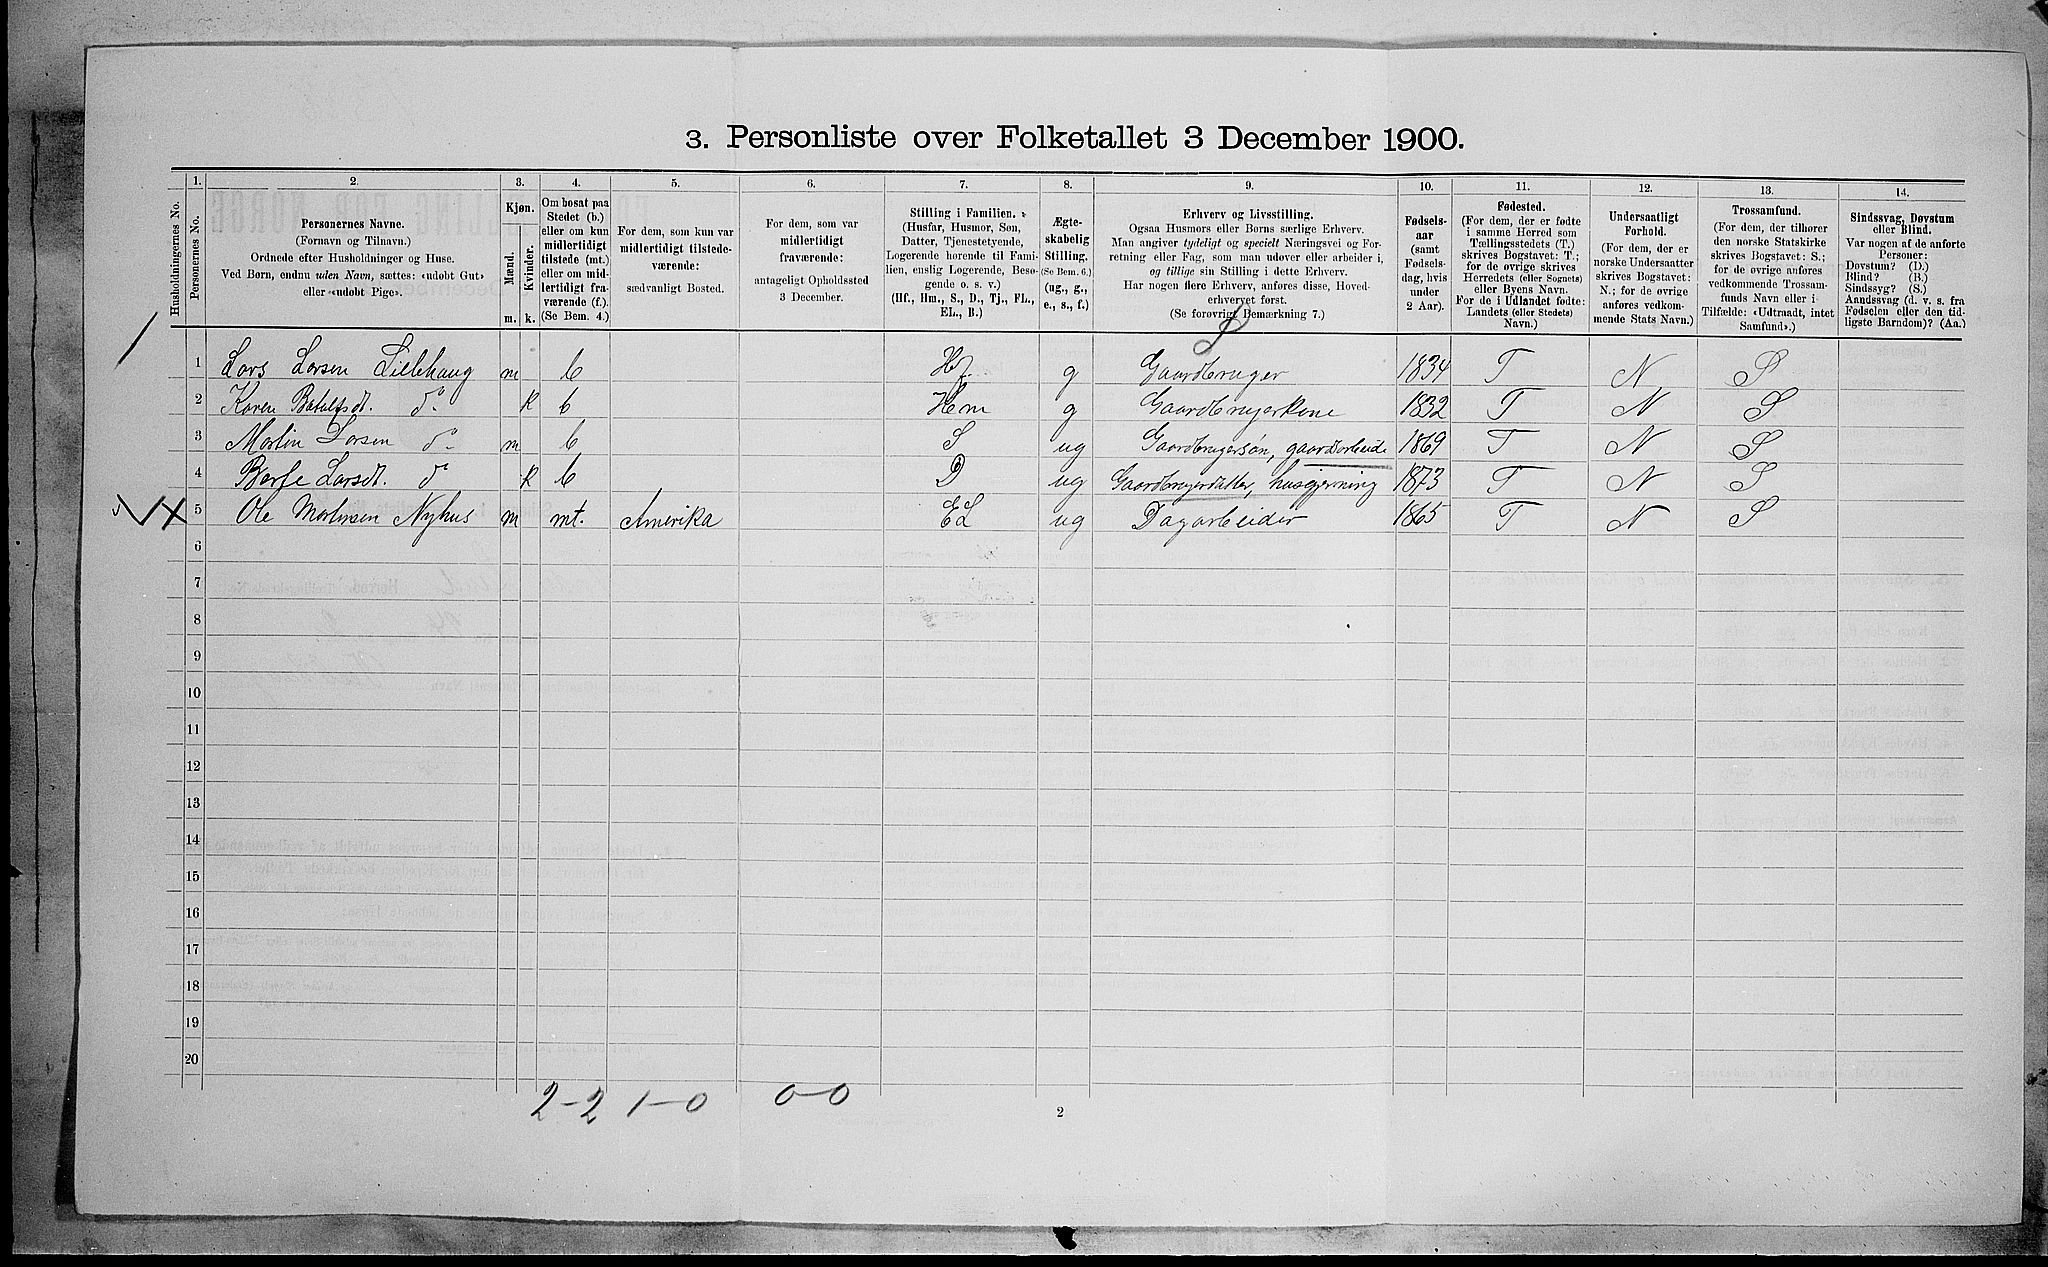 3. Personliste over Folketallet 3 December 1900.
Husholdningernes No.
1.
Personernes No.
2.
Personernes Navne.
(Fornavn og Tilnavn.)
Ordnede efter Husholdninger og Huse.
Ved Børn, endnu uden Navn, sættes: «udøbt Gut»
eller «udøbt Pige».
3.
Kjøn.
Mænd.
Kvinder.
m.
k.
4.
Om bosat paa
Stedet (b.)
eller om kun
midlertidigt
tilstede (mt.)
eller om mid-
lertidigt fra-
værende (f.).
(Se Bem. 4.)
5.
For dem, som kun var
midlertidigt tilstede-
værende:
sædvanligt Bosted.
6.
For dem, som var
midlertidigt
fraværende:
antageligt Opholdssted
3 December.
7.
Stilling i Familien.
(Husfar, Husmor, Søn,
Datter, Tjenestetyende,
Logerende hørende til Fami-
lien, enslig Logerende, Besø-
gende o. s. v.)
(Hf., Hm., S., D., Tj., FL.,
EL., B.)
8.
Ægte-
skabelig
Stilling.
(Se Bem. 6.)
(ug., g.,
e., s., f.)
9.
Erhverv og Livsstilling.
Ogsaa Husmors eller Børns særlige Erhverv.
Man angiver tydeligt og specielt Næringsvei og For-
retning eller Fag, som man udøver eller arbeider i,
og tillige sin Stilling i dette Erhverv.
Har nogen flere Erhverv, anføres disse, Hoved-
erhvervet først.
(Se forøvrigt Bemærkning 7.)
10.
Fødsels-
aar
(samt
Fødsels-
dag, hvis
under
2 Aar).
11.
Fødested.
(For dem, der er fødte
i samme Herred som
Tællingsstedets (T.)
skrives Bogstavet: T.;
for de øvrige skrives
Herredets (eller Sognets)
eller Byens Navn.
For de i Udlandet fødte:
Landets (eller Stedets)
Navn.)
12.
Undersaatligt
Forhold.
(For dem, der er
norske Undersaatter
skrives Bogstavet:
N.; for de øvrige
anføres vedkom-
mende Stats Navn.)
13.
Trossamfund.
(For dem, der tilhører
den norske Statskirke
skrives Bogstavet: S.;
for de øvrige anføres
vedkommende Trossam-
funds Navn eller i
Tilfælde: «Udtraadt, intet
Samfund».)
14.
Sindssvag, Døvstum
eller Blind.
Var nogen af de anførte
Personer:
Døvstum? (D.)
Blind? (B.)
Sindssyg? (S.)
Aandssvag (d. v. s. fra
Fødselen eller den tid-
ligste Barndom)? (Aa.)
1 Lars Larsen Lillehaug m b Hf. g Gaardbruger 1834 T N S
2 Karen Botolfsdt. do k b Hm g Gaardbrugerkone 1832 T N S
3 Martin Larsen do m b S ug Gaardbrugersøn, gaardsarbeide 1869 T N S
4 Larsdt. do k b D ug Gaardbrugerdatter, husgjerning 1873 T N S
5 Ole Mortensen Nyhus m mt. Amerika EL ug Dagarbeider 1865 T N S
6
7
8
9
10
11
12
13
14
15
16
17
18
19
20
2-2 1-0 0-0
2